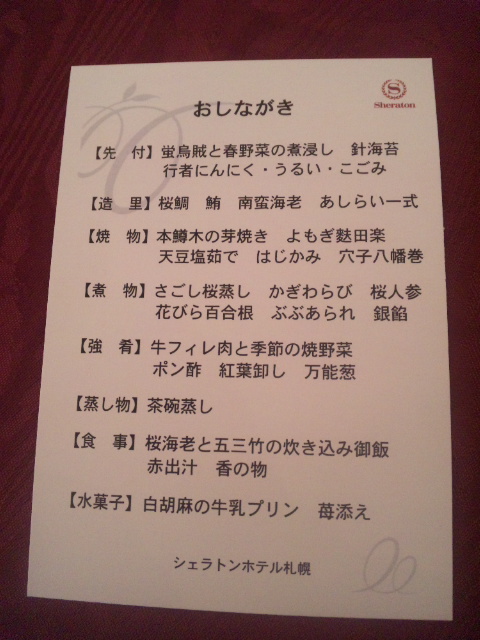 おしながき
Sheraton
【先 付】蛍烏賊と春野菜の煮浸し 針海苔
行者にんにく・うるい・こごみ
【造 里】桜鯛 鮪 南蛮海老 あしらい一式
【焼 物】本鱒木の芽焼き よもぎ麩田楽
天豆塩茹で はじかみ 穴子八幡巻
【煮 物】さごし桜蒸し かぎわらび 桜人参
花びら百合根 ぶぶあられ 銀餡
【強 肴】牛フィレ肉と季節の焼野菜
ポン酢 紅葉卸し 万能葱
【蒸し物】茶碗蒸し
【食 事】桜海老と五三竹の炊き込み御飯
赤出汁 香の物
【水菓子】白胡麻の牛乳プリン 苺添え
シェラトンホテル札幌